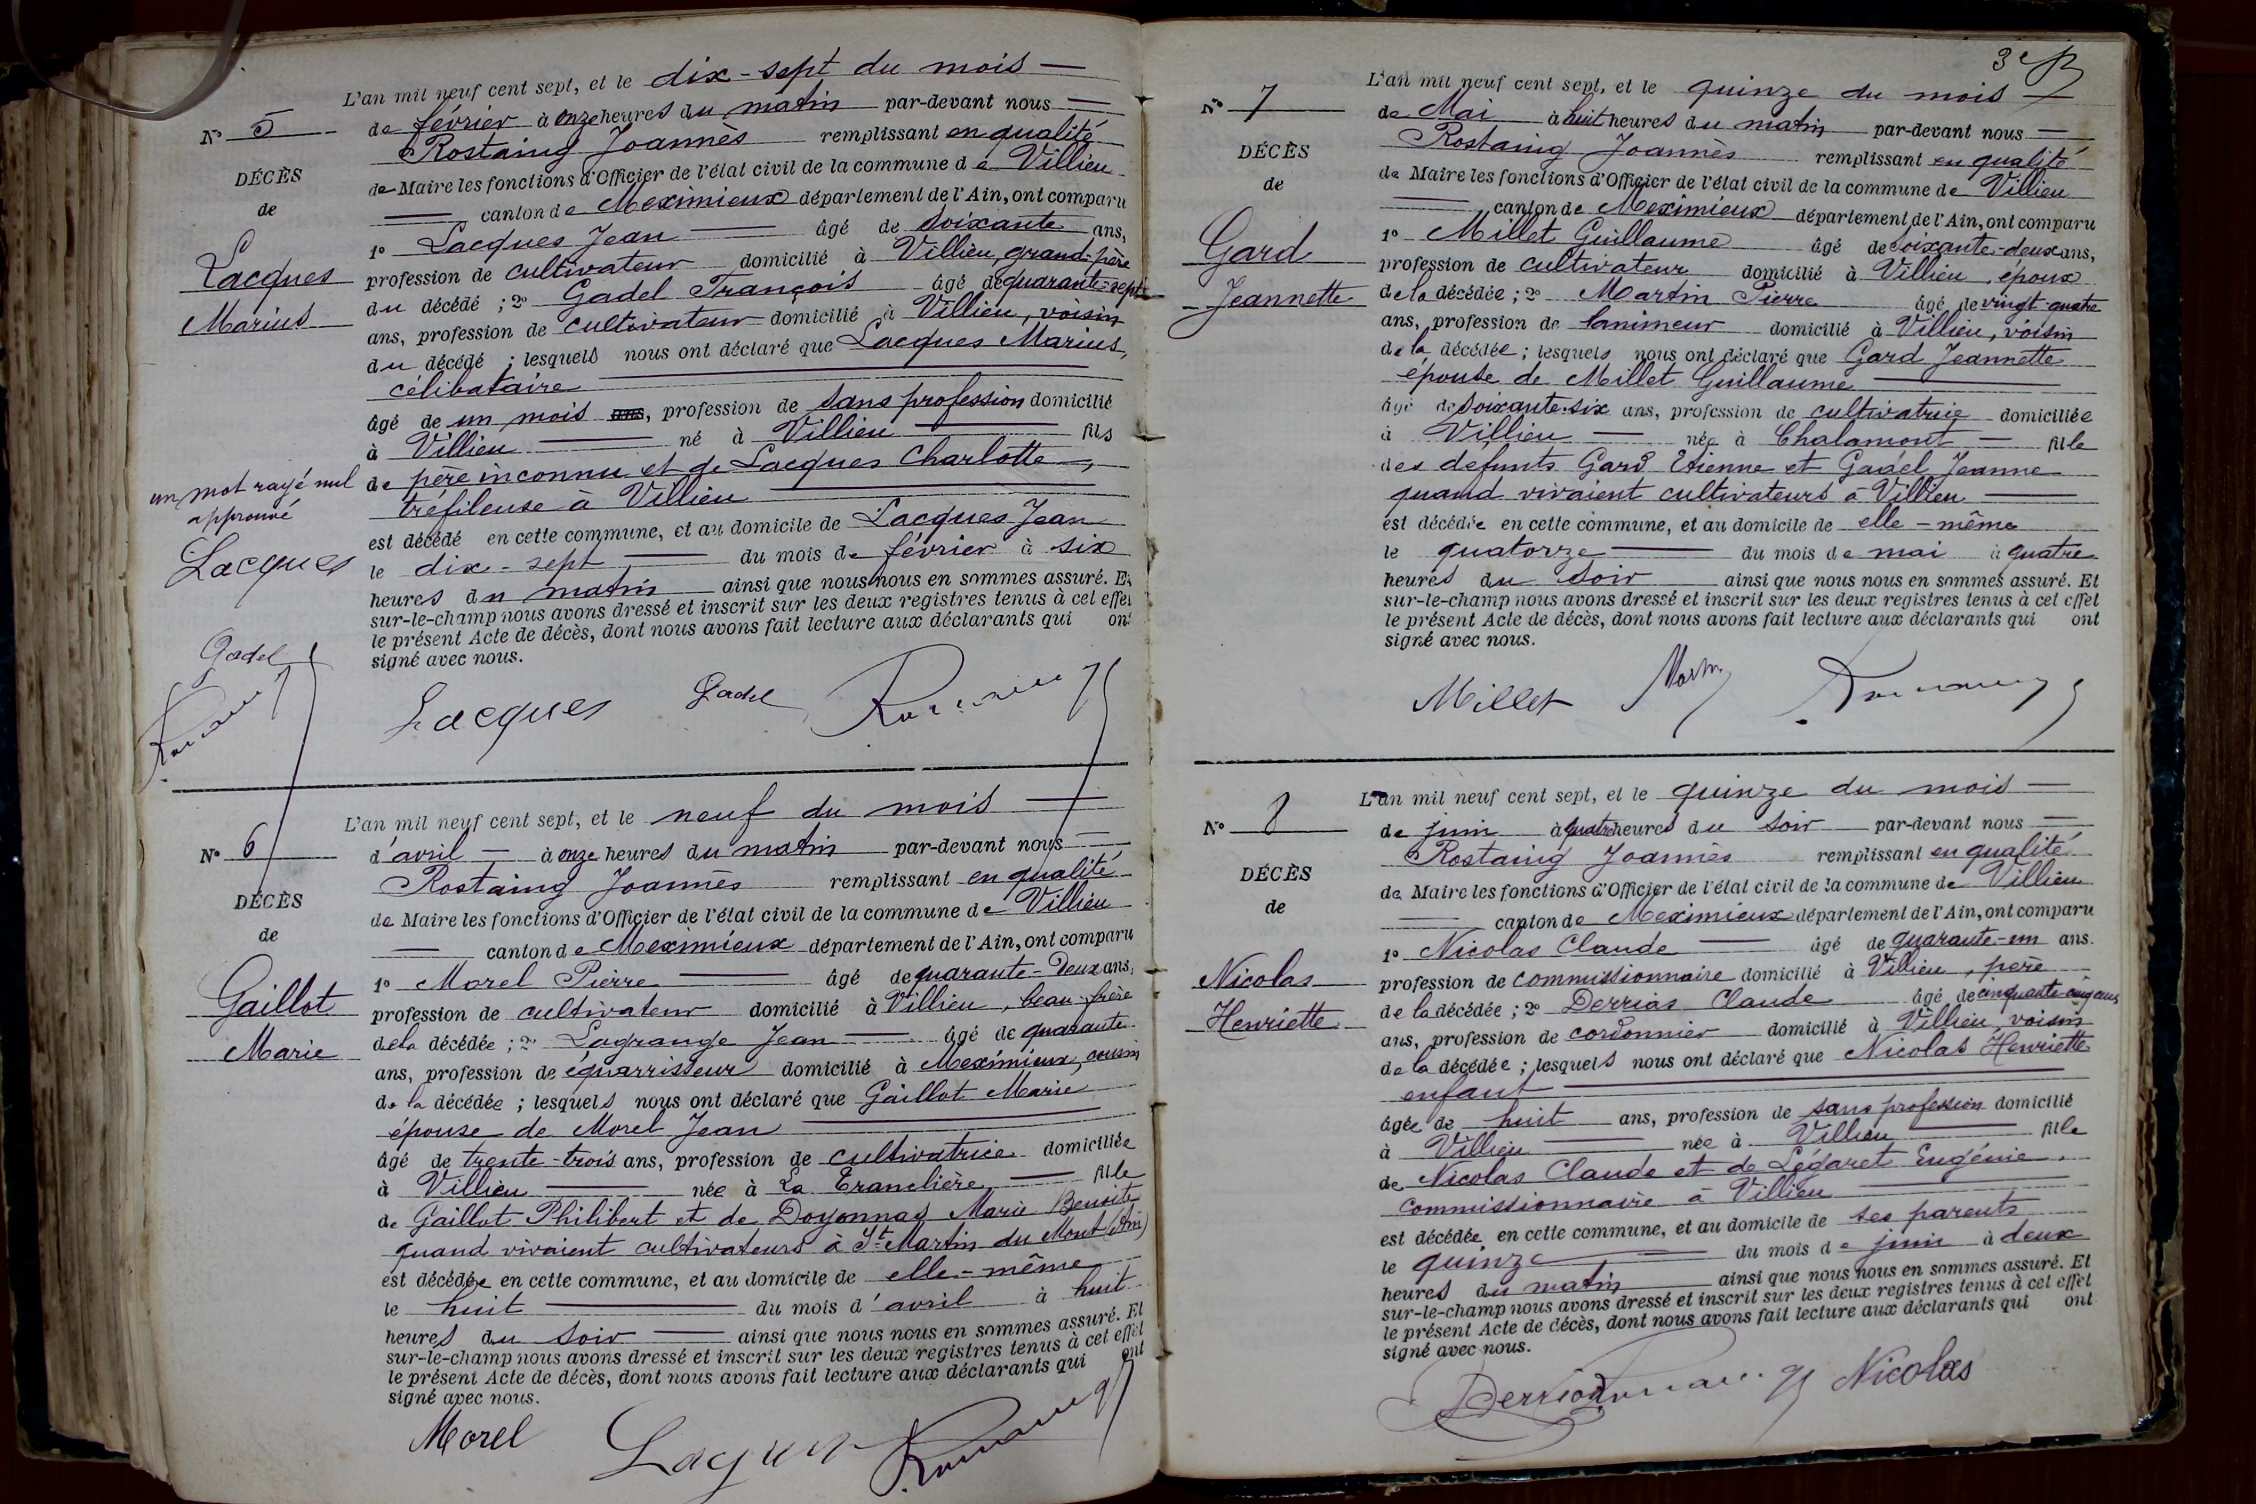 L'an mil neuf cent sept, et le dix-sept du mois
N° 5
de février à onze heures du matin par-devant nous
Rostaing Joannès remplissant en qualité
DÉCÈS
de Maire les fonctions d'Officier de l'état civil de la commune de Villieu
de
canton de Meximieux département de l'Ain, ont comparu
1° Lacques Jean âgé de soixante ans,
Lacques
profession de cultivateur domicilié à Villieu, grand-père
Marius
du décédé ; 2° Gadel François âgé de quarante-sept
ans, profession de cultivateur domicilié à Villieu, voisin
du décédé ; lesquels nous ont déclaré que Lacques Marius,
célibataire
âgé de un mois ans, profession de sans profession domicilié
à Villieu né à Villieu fils
un mot rayé nul
approuvé
de père inconnu et de Lacques Charlotte,
tréfileuse à Villieu
est décédé en cette commune, et au domicile de Lacques Jean
Lacques
le dix-sept du mois de février à six
heures du matin ainsi que nous nous en sommes assuré. Et
sur-le-champ nous avons dressé et inscrit sur les deux registres tenus à cet effet
le présent Acte de décès, dont nous avons fait lecture aux déclarants qui ont
Gadel
signé avec nous.
Lacques Gadel
L'an mil neuf cent sept, et le neuf du mois
N° 6
d'avril à onze heures du matin par-devant nous
Rostaing Joannès remplissant en qualité
DÉCÈS
de Maire les fonctions d'Officier de l'état civil de la commune de Villieu
de
canton de Meximieux département de l'Ain, ont comparu
1° Morel Pierre âgé de quarante-deux ans,
Gaillot
profession de cultivateur domicilié à Villieu, beau-frère
Marie
de la décédée ; 2° Lagrange Jean âgé de quarante
ans, profession de équarrisseur domicilié à Meximieux, cousin
de la décédée ; lesquels nous ont déclaré que Gaillot Marie
épouse de Morel Jean
âgé de trente-trois ans, profession de cultivatrice domiciliée
à Villieu née à La Tranclière fille
de Gaillot Philibert et de Doyonnas Marie Benoite
quand vivaient cultivateurs à St-Martin du Mont (Ain)
est décédée en cette commune, et au domicile de elle-même
le huit du mois d'avril à huit
heures du soir ainsi que nous nous en sommes assuré. Et
sur-le-champ nous avons dressé et inscrit sur les deux registres tenus à cet effet
le présent Acte de décès, dont nous avons fait lecture aux déclarants qui ont
signé avec nous.
Morel
L'an mil neuf cent sept, et le quinze du mois
N° 7
de Mai à huit heures du matin par-devant nous
Rostaing Joannès remplissant en qualité
DÉCÈS
de Maire les fonctions d'Officier de l'état civil de la commune de Villieu
de
canton de Meximieux département de l'Ain, ont comparu
1° Millet Guillaume âgé de soixante-deux ans,
Gard
profession de cultivateur domicilié à Villieu, époux
Jeannette
de la décédée ; 2° Martin Pierre âgé de vingt-quatre
ans, profession de domicilié à Villieu, voisin
de la décédée ; lesquels nous ont déclaré que Gard Jeannette
épouse de Millet Guillaume
âgé de soixante-six ans, profession de cultivatrice domiciliée
à Villieu née à Chalamont fille
des défunts Gard Etienne et Gadel Jeanne
quand vivaient cultivateurs à Villieu
est décédée en cette commune, et au domicile de elle-même
le quatorze du mois de mai à quatre
heures du soir ainsi que nous nous en sommes assuré. Et
sur-le-champ nous avons dressé et inscrit sur les deux registres tenus à cet effet
le présent Acte de décès, dont nous avons fait lecture aux déclarants qui ont
signé avec nous.
Millet
L'an mil neuf cent sept, et le quinze du mois
N° 8
de juin à quatre heures du soir par-devant nous
Rostaing Joannès remplissant en qualité
DÉCÈS
de Maire les fonctions d'Officier de l'état civil de la commune de Villieu
de
canton de Meximieux département de l'Ain, ont comparu
1° Nicolas Claude âgé de quarante-un ans.
Nicolas
profession de commissionnaire domicilié à Villieu, père
Henriette
de la décédée ; 2° Derrias Claude âgé de cinquante-cinq ans
ans, profession de cordonnier domicilié à Villieu, voisin
de la décédée ; lesquels nous ont déclaré que Nicolas Henriette
enfant
âgée de huit ans, profession de sans profession domicilié
à Villieu née à Villieu fille
de Nicolas Claude et de Légaret Eugénie,
commissionnaire à Villieu
est décédée en cette commune, et au domicile de ses parents
le quinze du mois de juin à deux
heures du matin ainsi que nous nous en sommes assuré. Et
sur-le-champ nous avons dressé et inscrit sur les deux registres tenus à cet effet
le présent Acte de décès, dont nous avons fait lecture aux déclarants qui ont
signé avec nous.
Nicolas